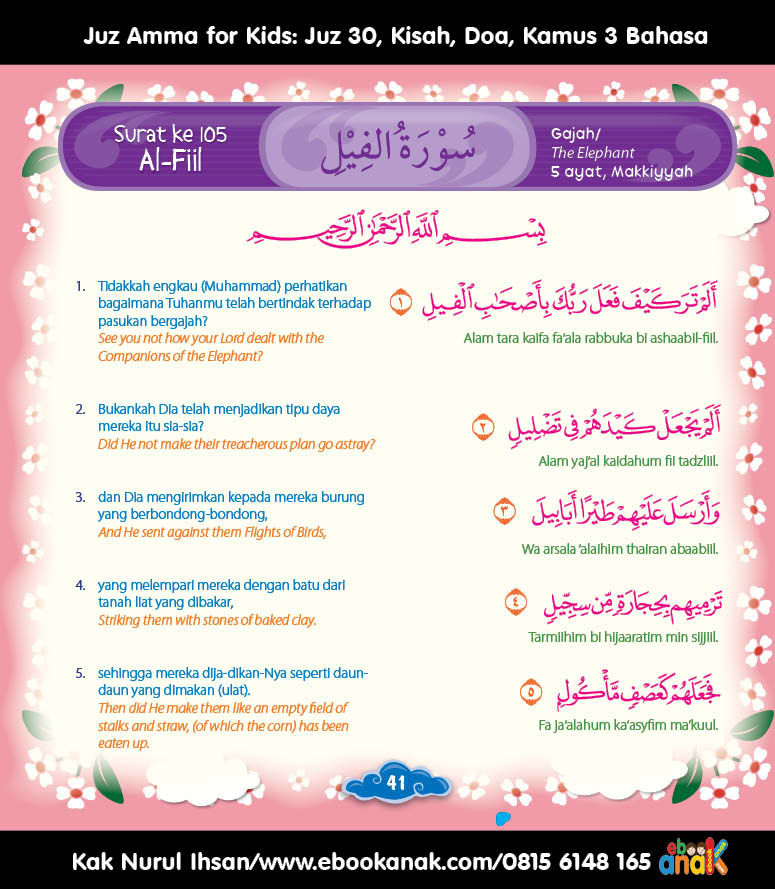 Juz Amma for Kids: Juz 30, Kisah, Doa, Kamus 3 Bahasa
Surat ke 105
Al-Fiil
سُوْرَةُ الْفِيْلِ
Gajah/
The Elephant
5 ayat, Makkiyyah
بِسْــــمِ اللّٰهِ الرَّحْمٰنِ الرَّحِيْـــمِ
1. Tidakkah engkau (Muhammad) perhatikan
bagaimana Tuhanmu telah bertindak terhadap
pasukan bergajah?
See you not how your Lord dealt with the
Companions of the Elephant?
أَلَمْ تَرَ كَيْفَ فَعَلَ رَبُّكَ بِأَصْحَابِ الْفِيلِ ١
Alam tara kaifa fa'ala rabbuka bi ashaabil-fiil.
2. Bukankah Dia telah menjadikan tipu daya
mereka itu sia-sia?
Did He not make their treacherous plan go astray?
أَلَمْ يَجْعَلْ كَيْدَهُمْ فِي تَضْلِيلٍ ٢
Alam yaj'al kaidahum fii tadzliil.
3. dan Dia mengirimkan kepada mereka burung
yang berbondong-bondong,
And He sent against them Flights of Birds,
وَأَرْسَلَ عَلَيْهِمْ طَيْرًا أَبَابِيلَ ٣
Wa arsala 'alaihim thairan abaabiil.
4. yang melempari mereka dengan batu dari
tanah liat yang dibakar,
Striking them with stones of baked clay.
تَرْمِيهِم بِحِجَارَةٍ مِّن سِجِّيلٍ ٤
Tarmiihim bi hijaaratim min sijjiil.
5. sehingga mereka dija-dikan-Nya seperti daun-
daun yang dimakan (ulat).
Then did He make them like an empty field of
stalks and straw, (of which the corn) has been
eaten up.
فَجَعَلَهُمْ كَعَصْفٍ مَّأْكُولٍ ٥
Fa ja'alahum ka'asyfim ma'kuul.
41
Kak Nurul Ihsan/www.ebookanak.com/0815 6148 165
ebook anak